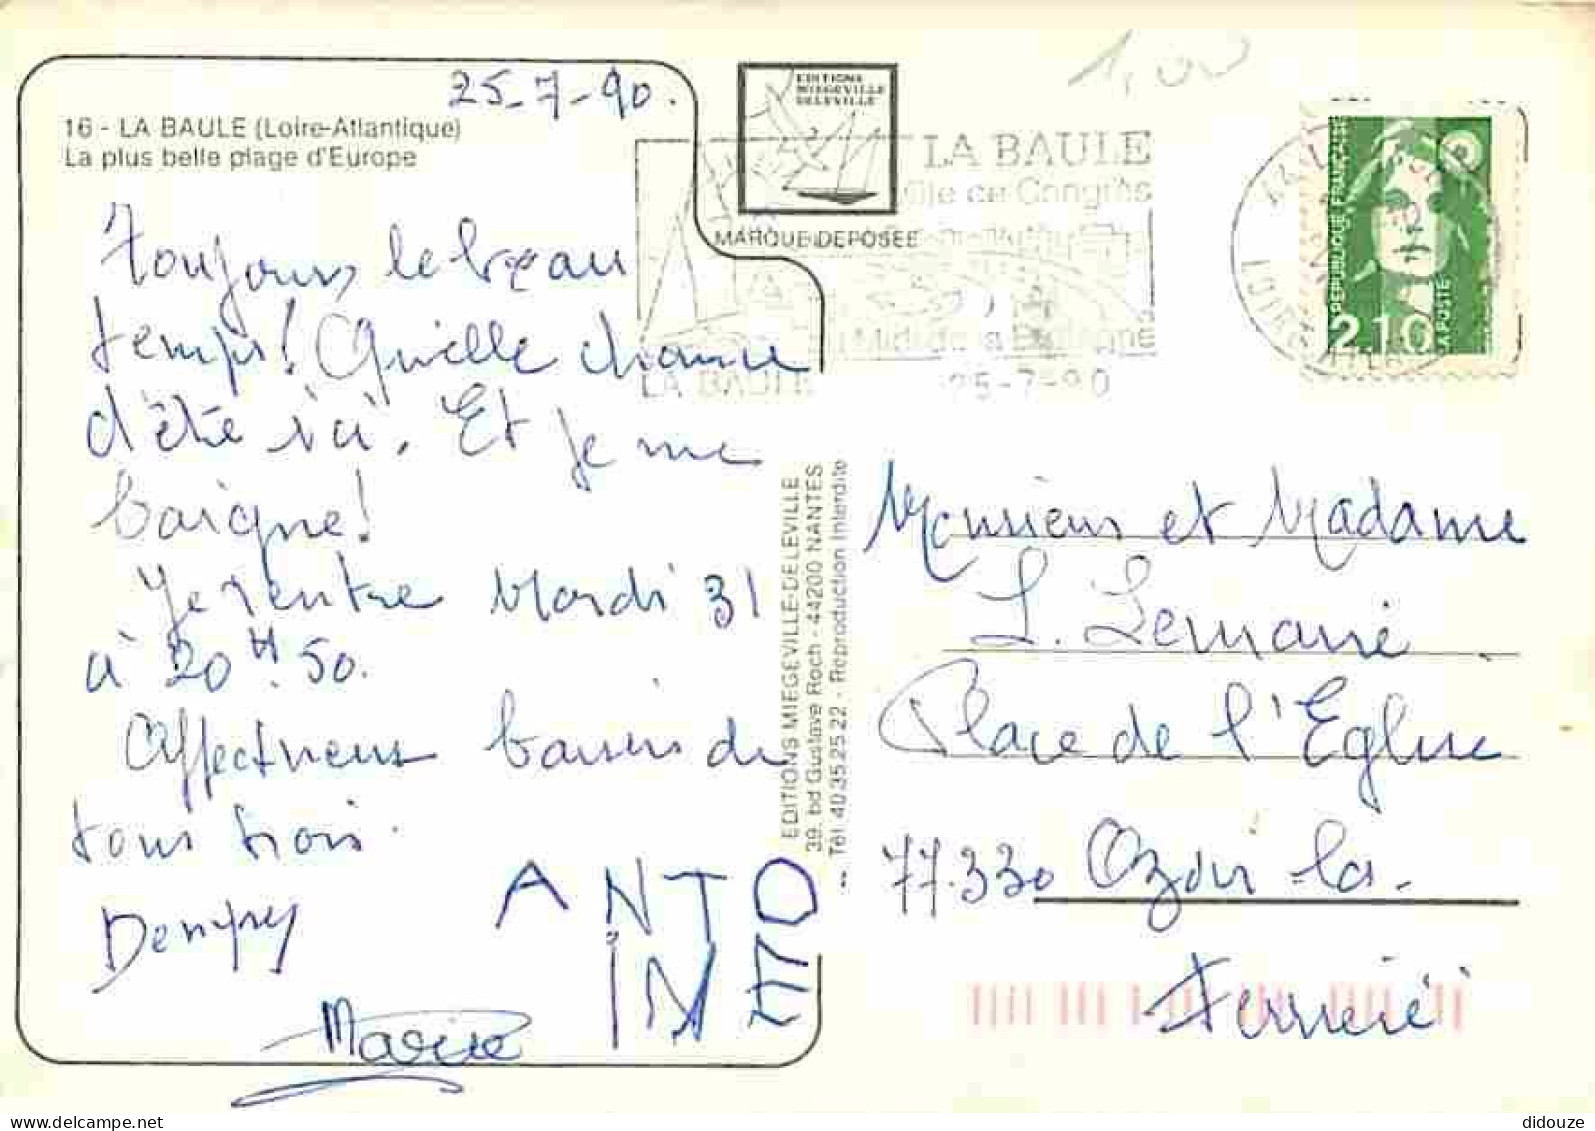 25-7-90.
16 - LA BAULE (Loire-Atlantique)
La plus belle plage d'Europe
Toujours le beau
temps! Quelle chance
d'été ici. Et je me
baigne!
Je rentre Mardi 31
à 20H.50.
Affectueux baisers de
tous trois.
Dempsy
ANTO
INE
Marie
EDITIONS
MIEGEVILLE
DELEVILLE
MARQUE DEPOSEE
1,00
LA BAULE
Ville de Congrès
Midi de la Bretagne
LA BAULE 25-7-90
REPUBLIQUE FRANÇAISE
2.10
LA POSTE
LOIRE
EDITIONS MIEGEVILLE-DELEVILLE
39, bd Gustave Roch - 44200 NANTES
Tél. 40.35.25.22 - Reproduction Interdite
Monsieur et Madame
L. Lemarié
Place de l'Eglise
77.330 Ozoir-la-
Ferrière
didouze